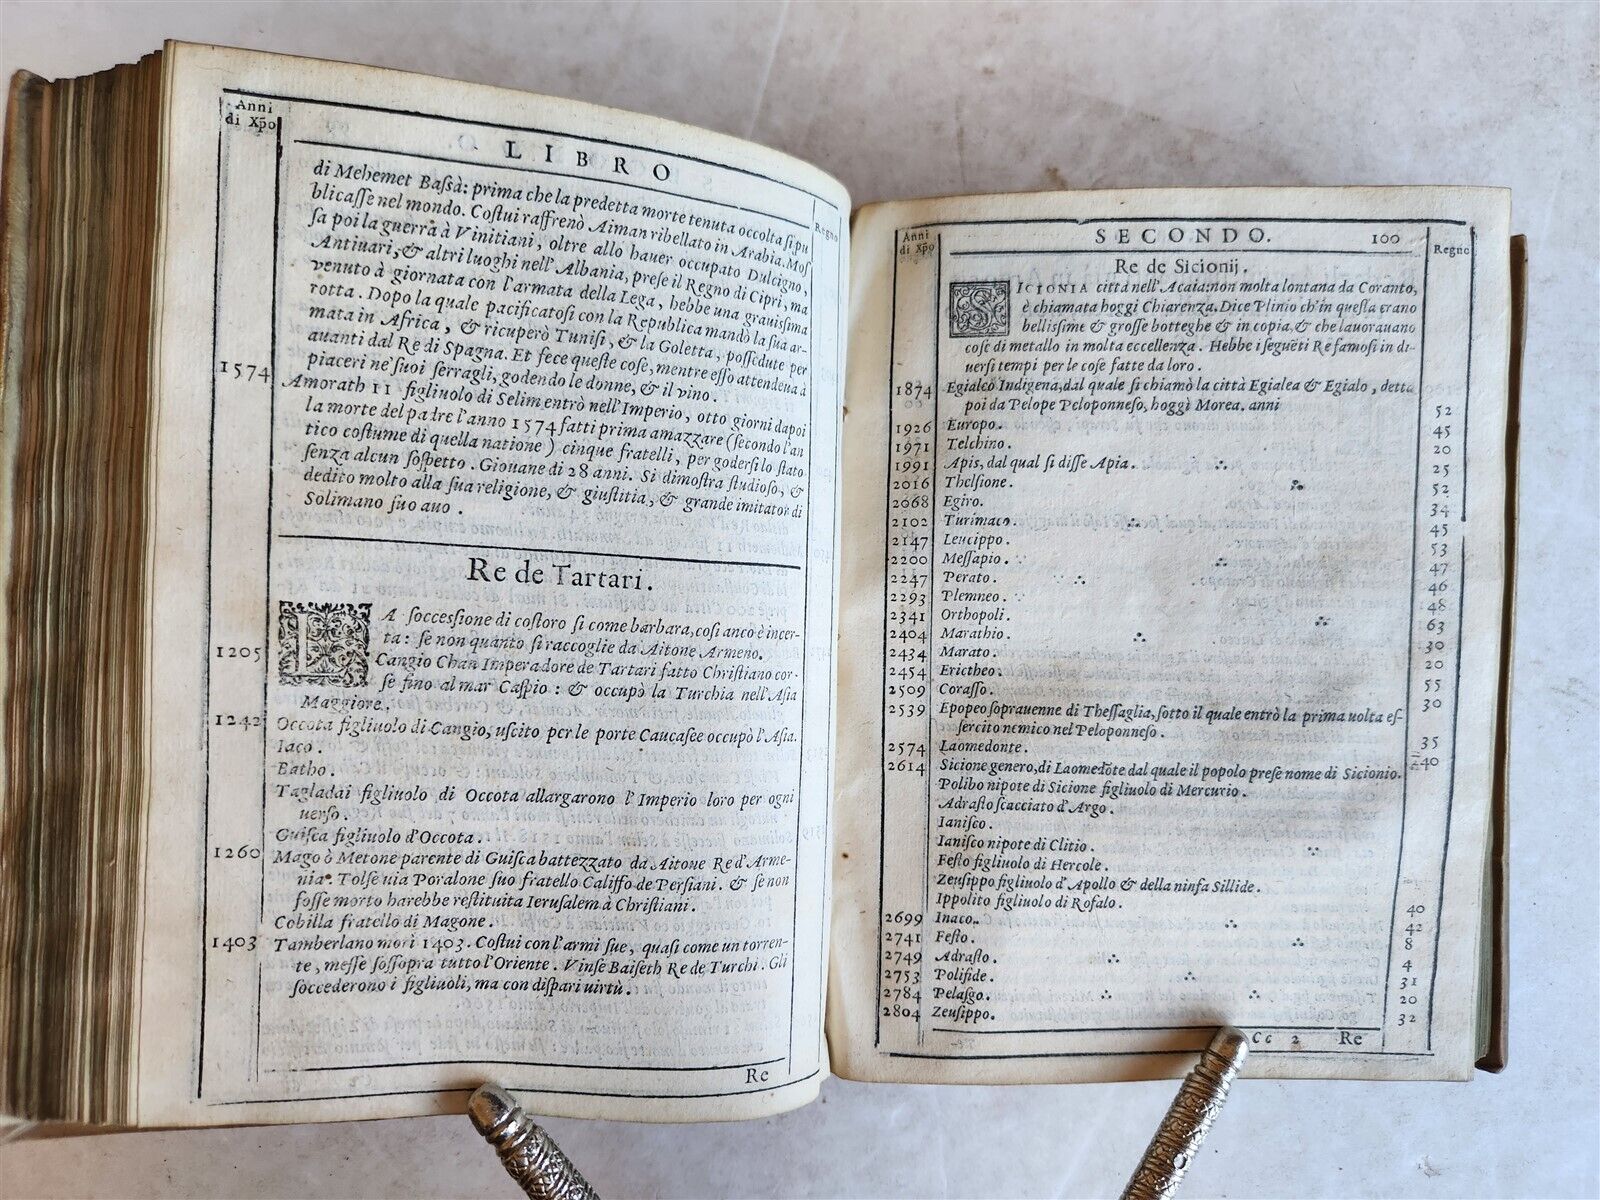 Anni
di Xp̄o
LIBRO
Regno
di Mehemet Baſsà: prima che la predetta morte tenuta occolta ſi pu
blicaſſe nel mondo. Coſtui raffrenò Aiman ribellato in Arabia. Moſ
ſa poi la guerra à Vinitiani, oltre allo hauer occupato Dulcigno,
Antiuari, & altri luoghi nell'Albania, preſe il Regno di Cipri, ma
venuto à giornata con l'armata della Lega, hebbe una grauiſsima
rotta. Dopo la quale pacificatoſi con la Republica mandò la ſua ar-
mata in Africa, & ricuperò Tuniſi, & la Goletta, poſſedute per
auanti dal Re di Spagna. Et fece queſte coſe, mentre eſſo attendeua à
piaceri ne'ſuoi ſerragli, godendo le donne, & il vino.
1574 Amorath II figliuolo di Selim entrò nell'Imperio, otto giorni dapoi
la morte del padre l'anno 1574 fatti prima amazzare (ſecondo l'an
tico coſtume di quella natione) cinque fratelli, per goderſi lo ſtato
ſenza alcun ſoſpetto. Giouane di 28 anni. Si dimoſtra ſtudioſo, &
dedito molto alla ſua religione, & giuſtitia, & grande imitator di
Solimano ſuo auo.
Re de Tartari.
LA ſocceſſione di coſtoro ſi come barbara, coſi anco è incer-
ta: ſe non quanto ſi raccoglie da Aitone Armeno.
1205 Cangio Chan Imperadore de Tartari fatto Chriſtiano cor-
ſe fino al mar Caſpio: & occupò la Turchia nell'Aſia
Maggiore.
1242 Occota figliuolo di Cangio, uſcito per le porte Caucaſee occupò l'Aſia.
Iaco.
Batho.
Tagladai figliuolo di Occota allargarono l'Imperio loro per ogni
uerſo.
Guiſca figliuolo d'Occota.
1260 Mago ò Metone parente di Guiſca battezzato da Aitone Re d'Arme-
nia. Tolſe uia Poralone ſuo fratello Califfo de Perſiani. & ſe non
foſſe morto harebbe reſtituita Ieruſalem à Chriſtiani.
Cobilla fratello di Magone.
1403 Tamberlano morì 1403. Coſtui con l'armi ſue, quaſi come un torren-
te, meſſe ſoſſopra tutto l'Oriente. Vinſe Baiſeth Re de Turchi. Gli
ſoccederono i figliuoli, ma con diſpari uirtù.
Re
Anni
di Xp̄o
SECONDO. 100
Regno
Re de Sicionij.
SICIONIA città nell'Acaia: non molta lontana da Coranto,
è chiamata hoggi Chiarenza. Dice Plinio ch'in queſta erano
belliſsime & groſſe botteghe & in copia, & che lauorauano
coſe di metallo in molta eccellenza. Hebbe i ſeguēti Re famoſi in di-
uerſi tempi per le coſe fatte da loro.
1874 Egialeo Indigena, dal quale ſi chiamò la città Egialea & Egialo, detta
poi da Pelope Peloponneſo, hoggi Morea. anni 52
1926 Europo. 45
1971 Telchino. 20
1991 Apis, dal qual ſi diſſe Apia. 25
2016 Thelſione. 52
2068 Egiro. 34
2102 Turimaco. 45
2147 Leucippo. 53
2200 Meſſapio. 47
2247 Perato. 46
2293 Plemneo. 48
2341 Orthopoli. 63
2404 Marathio. 30
2434 Marato. 20
2454 Erictheo. 55
2509 Coraſſo. 30
2539 Epopeo ſoprauenne di Theſſaglia, ſotto il quale entrò la prima uolta eſ-
ſercito nemico nel Peloponneſo. 35
2574 Laomedonte. 40
2614 Sicione genero, di Laomedōte dal quale il popolo preſe nome di Sicionio.
Polibo nipote di Sicione figliuolo di Mercurio.
Adraſto ſcacciato d'Argo.
Ianiſco.
Ianiſco nipote di Clitio.
Feſto figliuolo di Hercole.
Zeuſippo figliuolo d'Apollo & della ninfa Sillide.
Ippolito figliuolo di Rofalo.
2699 Inaco. 40
2741 Feſto. 42
2749 Adraſto. 8
2753 Polifide. 4
2784 Pelaſgo. 31
2804 Zeuſippo. 20
32
Cc 2 Re